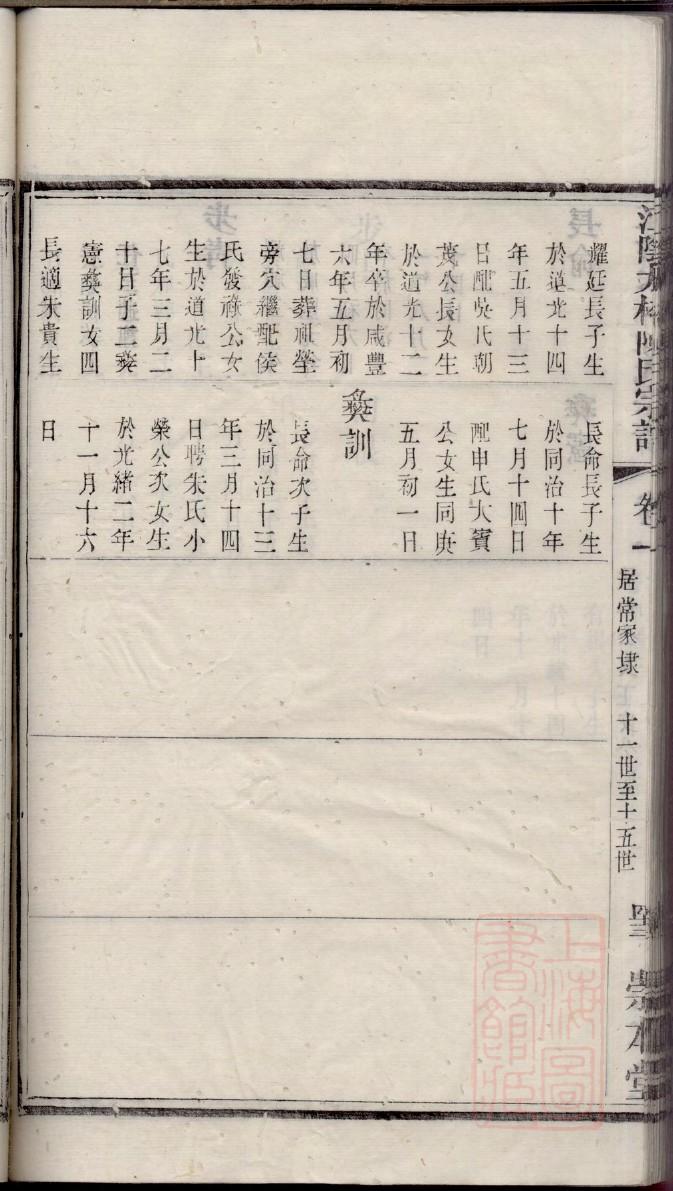 耀延長子生
於道光十四
年五月十三
日配吳氏朝
茂公長女生
於道光十二
年卒於咸豐
六年五月初
七日葬祖塋
旁穴繼配侯
氏發祿公女
生於道光十
七年三月二
十日子二彝
憲彝訓女四
長適朱貴生
長命長子生
於同治十年
七月十四日
配申氏大賓
公女生同庚
五月初一日
彝訓
長命次子生
於同治十三
年三月十四
日聘朱氏小
榮公次女生
於光緒二年
十一月十六
日
陳氏宗譜
卷一
居常家埭
十一世至十五世
崇本堂
上海圖書館藏